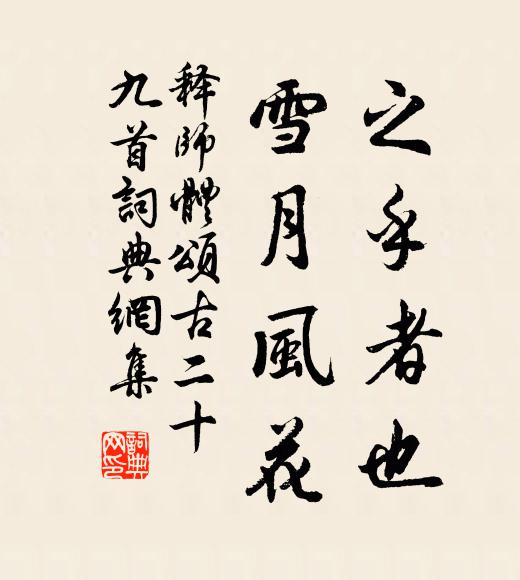 之乎者也
雪月風花
释師體頌古二十
九首詞典網集
詞典網印